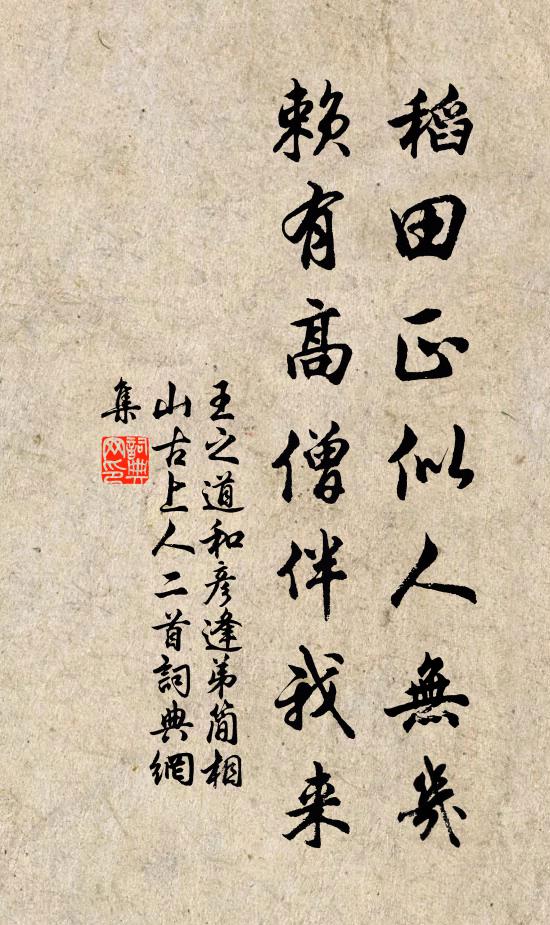 稻田正似人無幾
賴有高僧伴我来
王之道和彦逢弟簡相
山古上人二首詞典網
集
詞典
网印